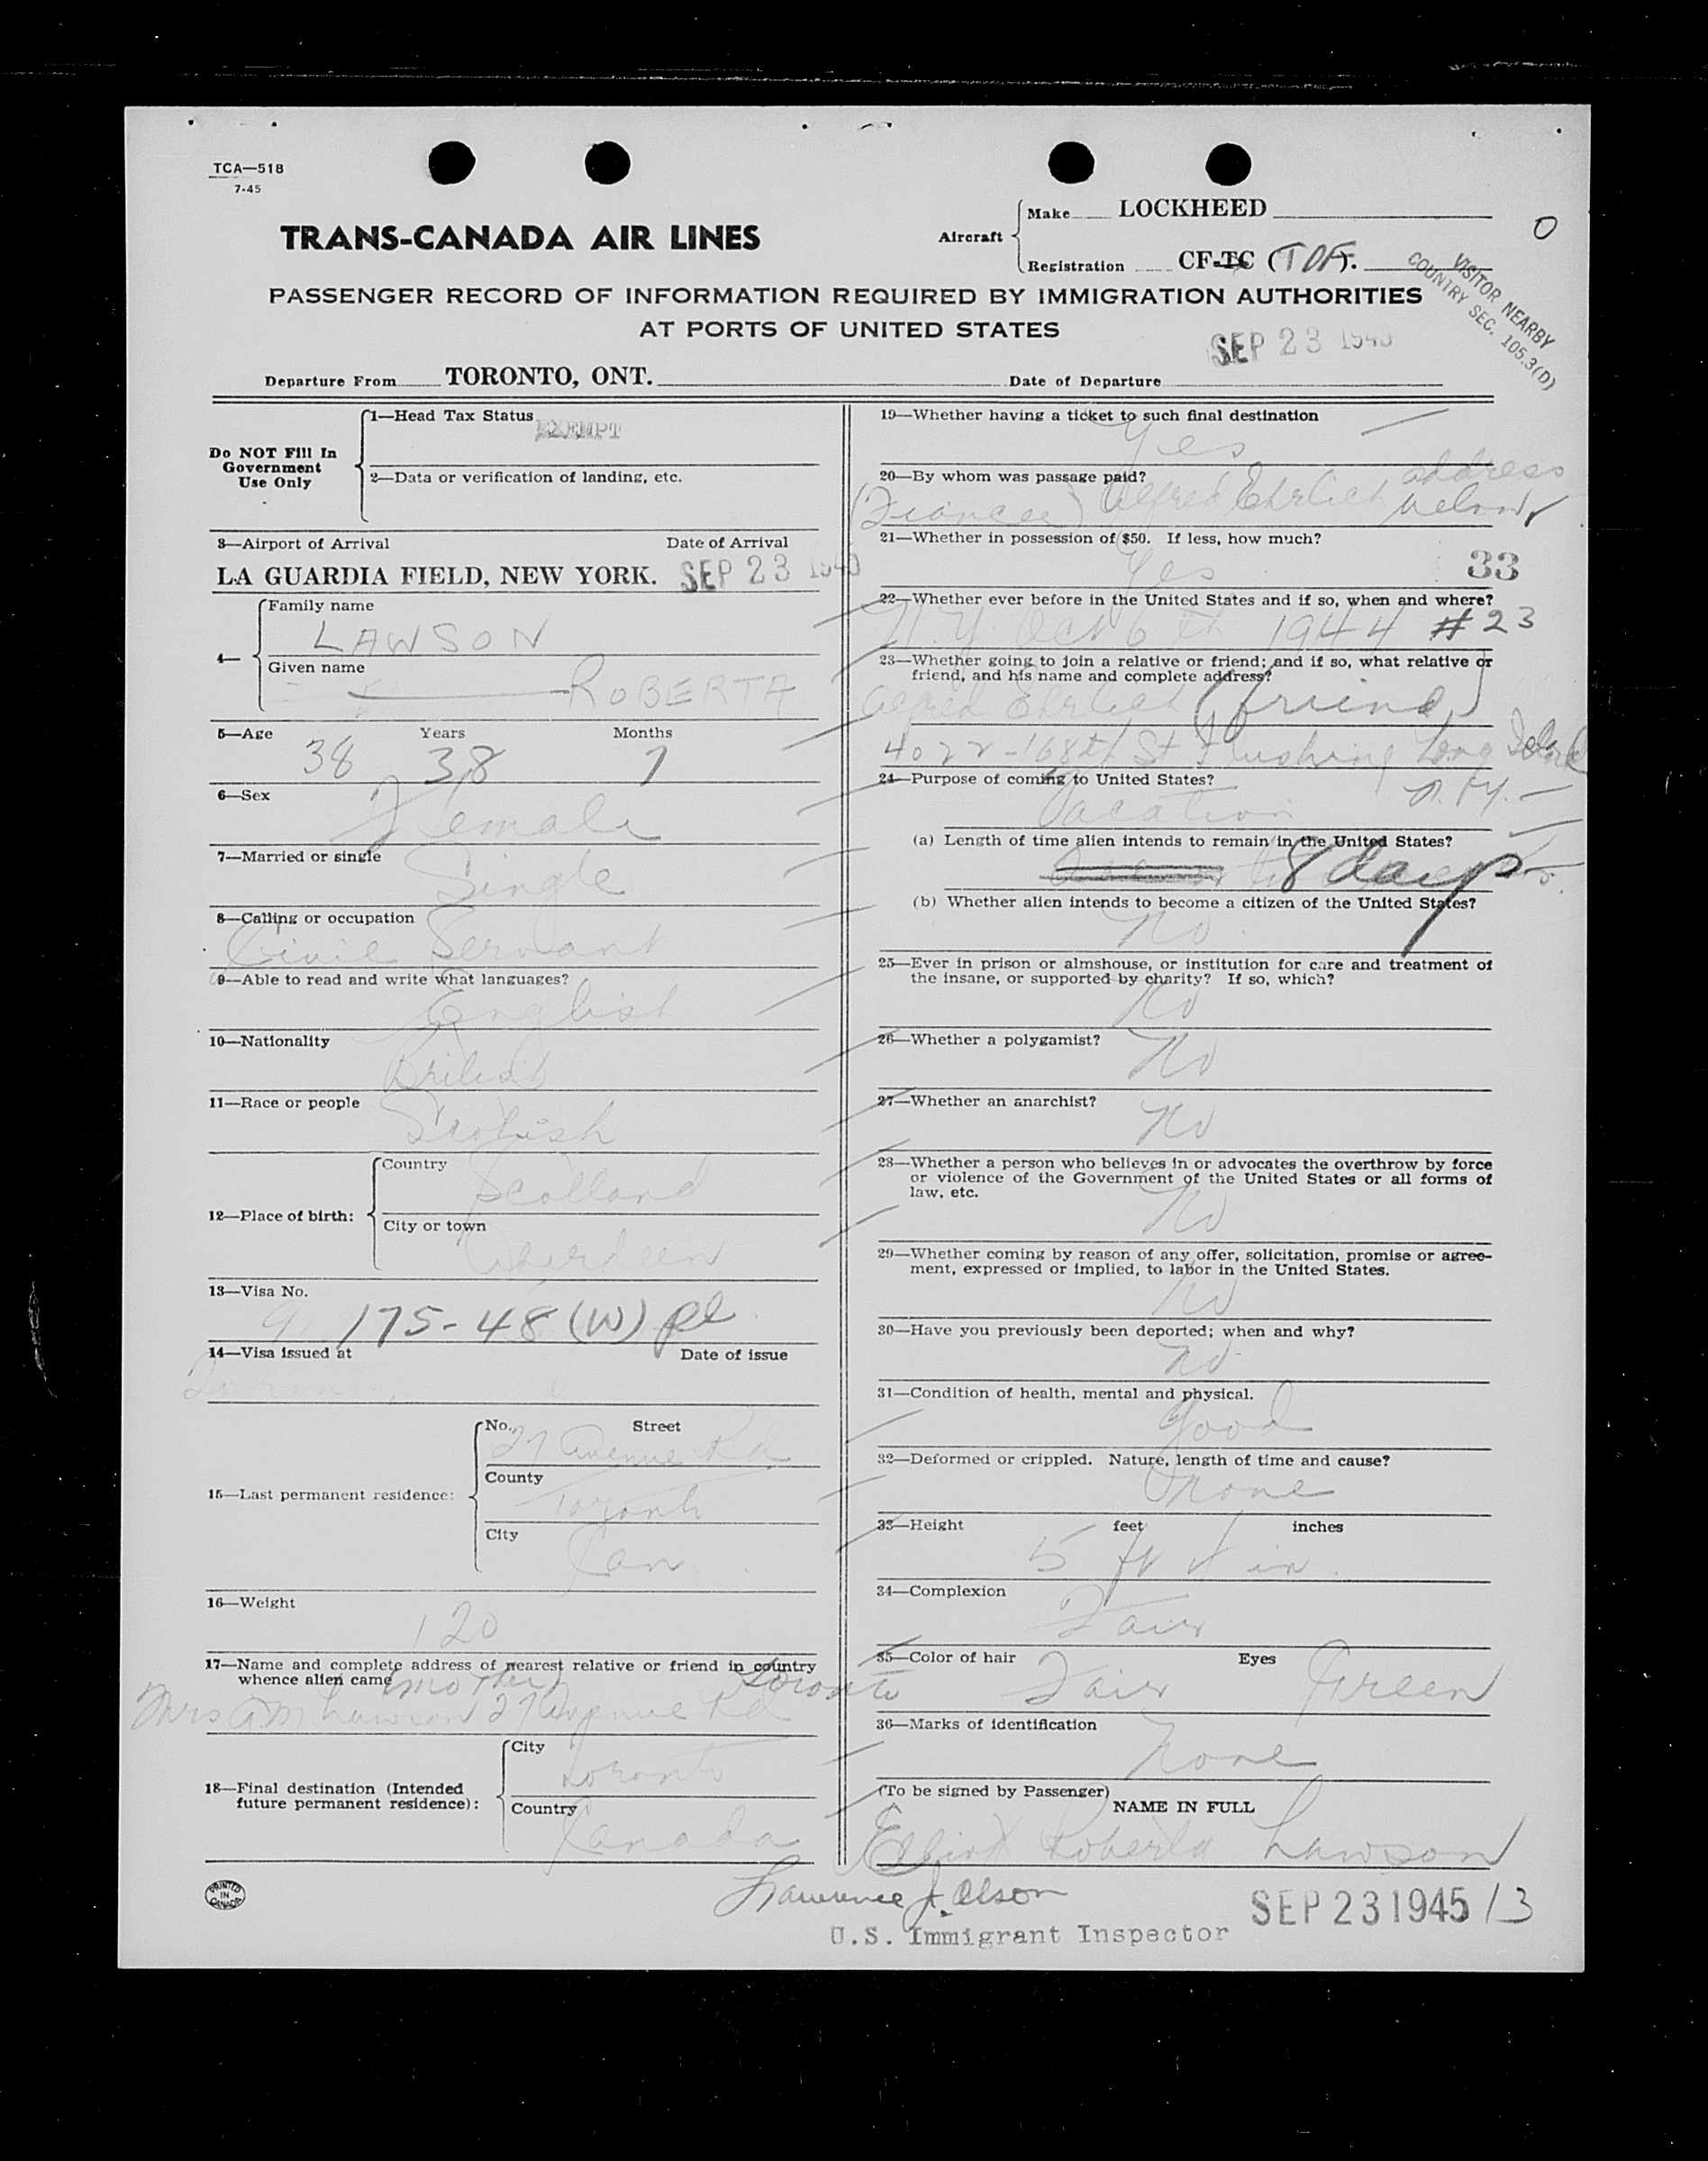 TCA—518
7-45
TRANS-CANADA AIR LINES
Aircraft
Make LOCKHEED
Registration CF-TC (TDF).
O
VISITOR NEARBY
COUNTRY SEC. 105.3(D)
PASSENGER RECORD OF INFORMATION REQUIRED BY IMMIGRATION AUTHORITIES
AT PORTS OF UNITED STATES
SEP 23 1945
Departure From TORONTO, ONT.
Date of Departure
Do NOT Fill In
Government
Use Only
1—Head Tax Status
EXEMPT
2—Data or verification of landing, etc.
3—Airport of Arrival Date of Arrival
LA GUARDIA FIELD, NEW YORK. SEP 23 1945
4—
Family name
LAWSON
Given name
ROBERTA
5—Age Years Months
38 38 7
6—Sex
Female
7—Married or single
Single
8—Calling or occupation
Civil Servant
9—Able to read and write what languages?
English
10—Nationality
British
11—Race or people
Scotish
12—Place of birth:
Country
Scotland
City or town
Aberdeen
13—Visa No.
175-48 (W) pl
14—Visa issued at Date of issue
15—Last permanent residence:
No. Street
27 Avenue Rd
County
Toronto
City
Can
16—Weight
120
17—Name and complete address of nearest relative or friend in country
whence alien came
mother Toronto
Mrs Lawson 27 Avenue Rd
18—Final destination (Intended
future permanent residence):
City
Toronto
Country
Canada
PRINTED
IN
CANADA
19—Whether having a ticket to such final destination
Yes
20—By whom was passage paid?
address
(Fiancee) Alfred Ehrlich below
21—Whether in possession of $50. If less, how much?
Yes
33
22—Whether ever before in the United States and if so, when and where?
N.Y. Oct 6th 1944 #23
23—Whether going to join a relative or friend; and if so, what relative or
friend, and his name and complete address?
Alfred Ehrlich (friend)
4022-168th St Flushing Long Island
N.Y.
24—Purpose of coming to United States?
Vacation
(a) Length of time alien intends to remain in the United States?
8 days
(b) Whether alien intends to become a citizen of the United States?
No
25—Ever in prison or almshouse, or institution for care and treatment of
the insane, or supported by charity? If so, which?
No
26—Whether a polygamist?
No
27—Whether an anarchist?
No
28—Whether a person who believes in or advocates the overthrow by force
or violence of the Government of the United States or all forms of
law, etc.
No
29—Whether coming by reason of any offer, solicitation, promise or agree-
ment, expressed or implied, to labor in the United States.
No
30—Have you previously been deported; when and why?
No
31—Condition of health, mental and physical.
Good
32—Deformed or crippled. Nature, length of time and cause?
None
33—Height feet inches
5 ft 4 in
34—Complexion
Fair
35—Color of hair Eyes
Fair Green
36—Marks of identification
None
(To be signed by Passenger)
NAME IN FULL
Roberta Lawson
Lawrence J. Olson
U.S. Immigrant Inspector
SEP 23 1945 / 3